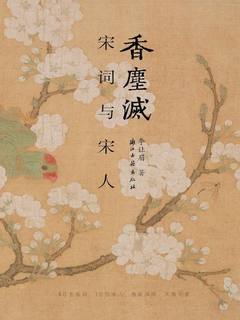 香塵滅
宋词与宋人
李让眉 著
浙江古籍出版社